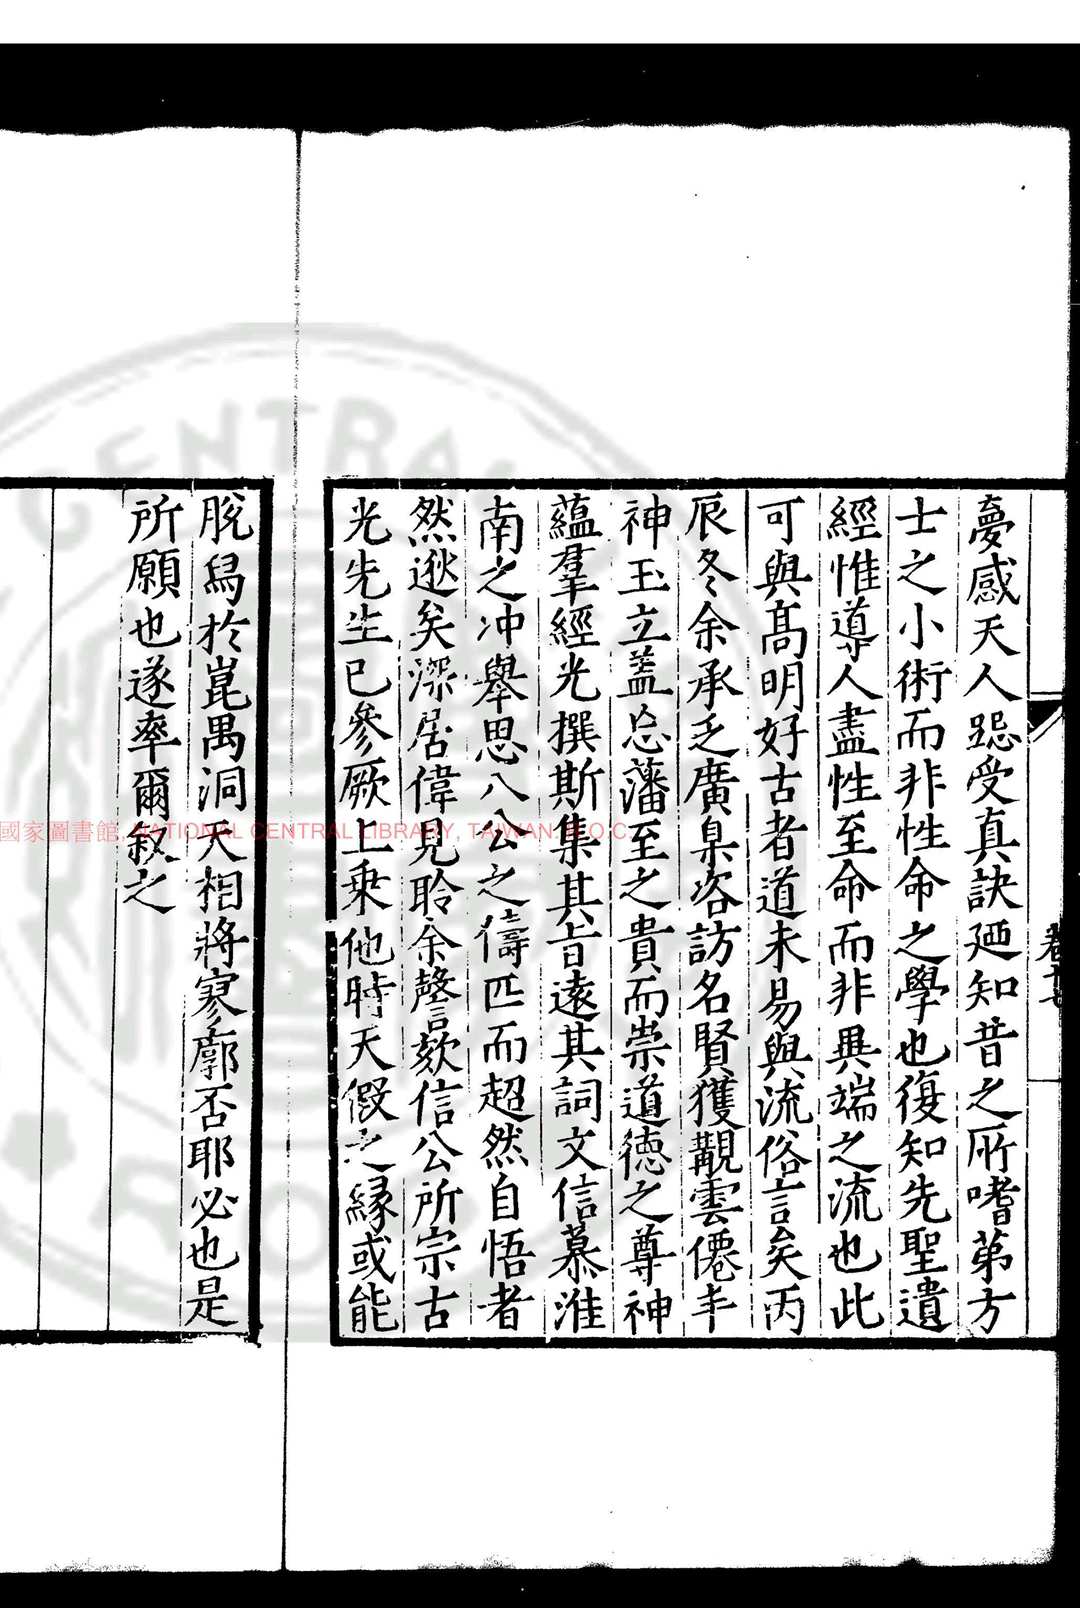 夣感天人跽受真訣廼知昔之所嗜第方
士之小術而非性命之學也復知先聖遺
經惟導人盡性至命而非異端之流也此
可與髙明好古者道未易與流俗言矣丙
辰冬余承乏廣臬咨訪名賢獲覯雲僊丰
神玉立蓋忘藩至之貴而崇道德之尊神
蘊羣經光撰斯集其旨遠其詞文信慕淮
南之冲舉思八公之儔匹而超然自悟者
然逖矣深居偉見聆余謦欬信公所宗古
光先生已參厥上乗他時天假之緣或能
脫舄於崑禺洞天相將寥廓否耶必也是
所願也遂率爾敘之
卷十七
國家圖書館, NATIONAL CENTRAL LIBRARY, TAIWAN, R.O.C.